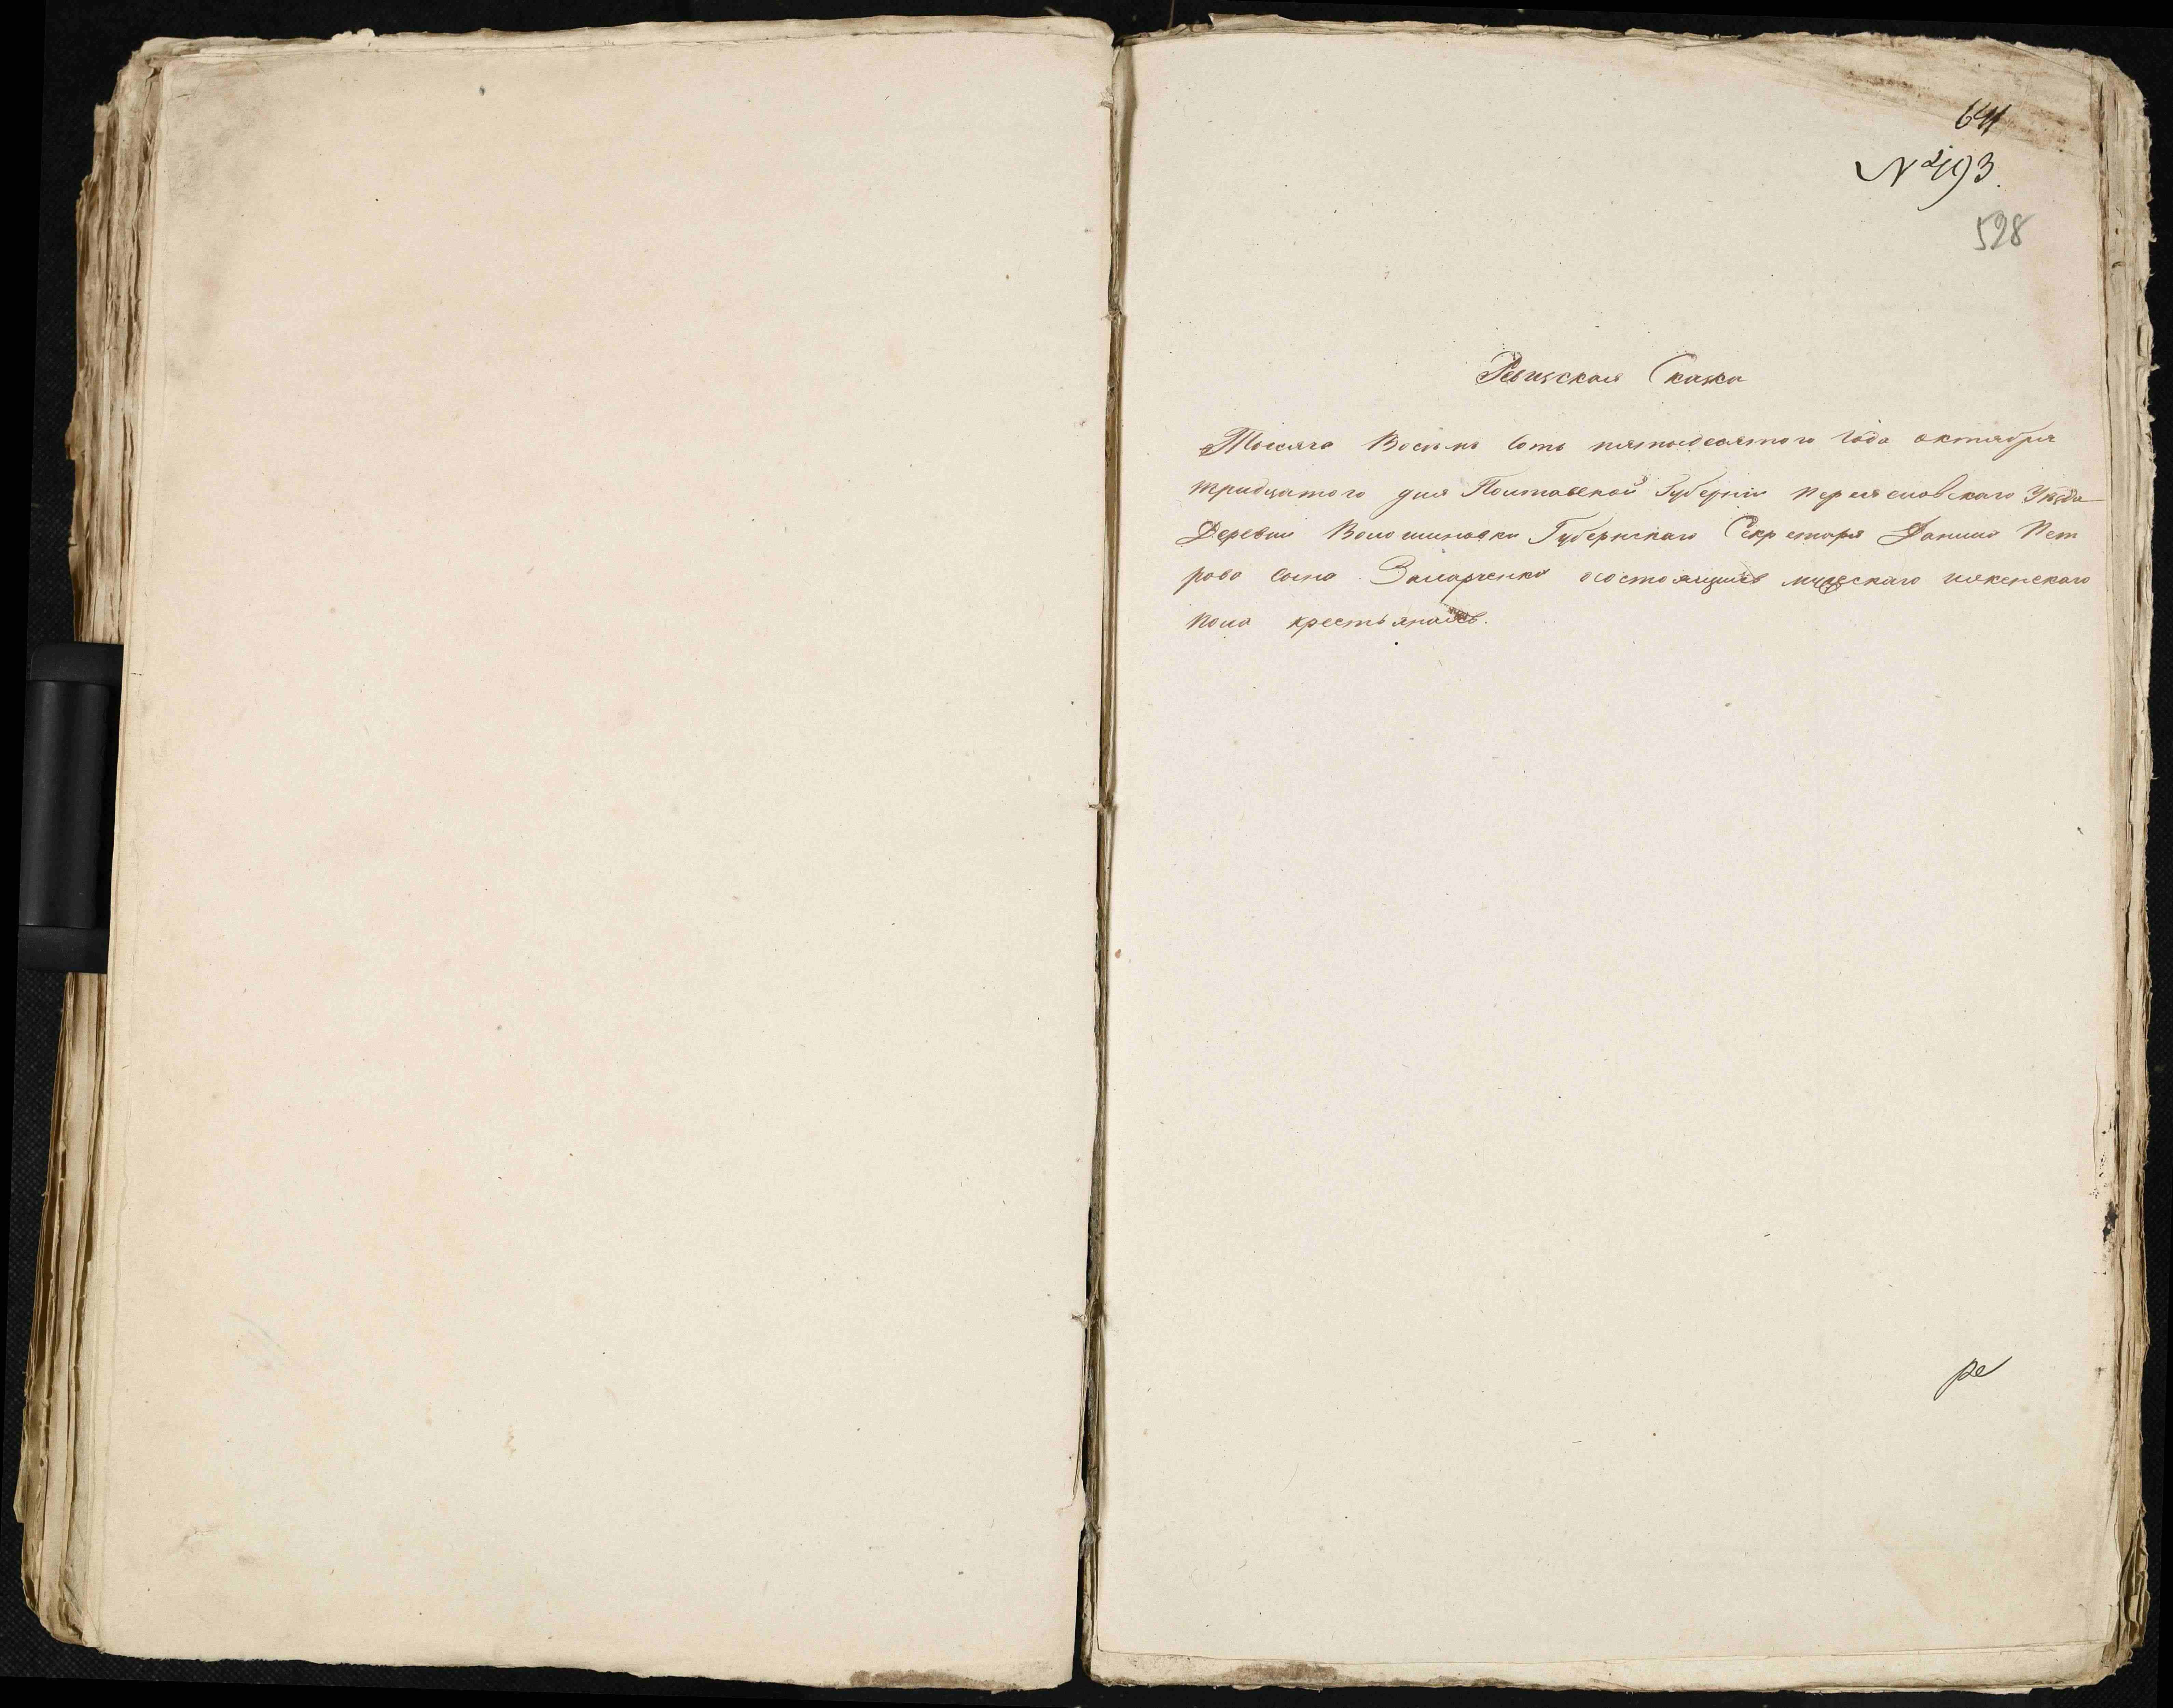 641
№ 493.
528
Ревизская Сказка
Тысяча Восемь Сотъ пятьдесятого Года октября
тридцатого дня Полтавской Губерніи Переяславскаго Уѣзда
Деревни Волошиновки Губернскаго Секретаря Данила Пет
рова сына осостоящихъ мужескаго иженскаго
пола крестьянахъ.
ре